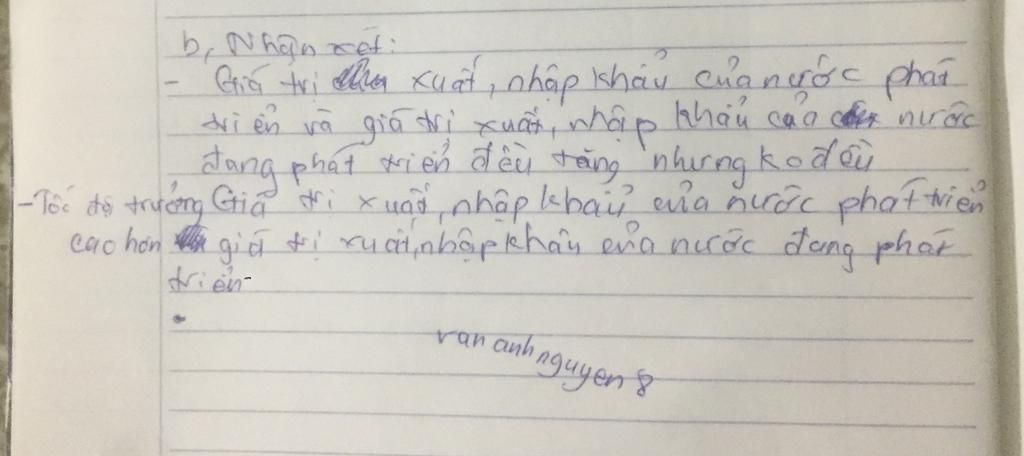 b, Nhận xét:
- Giá trị xuất, nhập khẩu của nước phát
triển và giá trị xuất, nhập khẩu của nước
đang phát triển đều tăng nhưng ko đều
- Tốc độ trưởng Giá trị xuất, nhập khẩu của nước phát triển
cao hơn giá trị xuất, nhập khẩu của nước đang phát
triển -
van anh nguyen 8